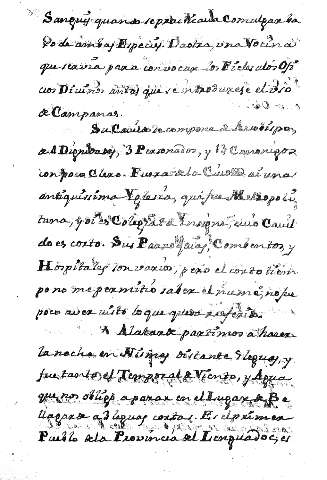 Sanguis quando se practicava Comulgar ba
xo de ambas Especies. La otra, una Vocina
que servia para convocar los Fieles a los Ofi
cios Divinos antes que se introduxese el uso
de Campanas.
Su Cavildo se compone de Arzobispo,
de 4 Dignidades, 3 Personados, y 12 Canonigos
con poco Clero. Fuera de la Ciudad ai una
antiquissima Yglesia, que fue Metropoli
tana, y oi es Colegiata Insigne, cuio Cavil
do es corto. Sus Parroquias, Combentos, y
Hospitales son varios, pero el corto tiem
po no me permitiò saber el num.o; no fue
poco aver visto lo que queda referido.
A la tarde partimos a hacer
la noche en Nismes distante 5 leguas, y
fue tanto el Temporal de Viento, y Agua
que nos obligò a parar en el Lugar de Be
llagarde a 3 leguas cortas. Es el primer
Pueblo de la Provincia del Lenguadoc; es